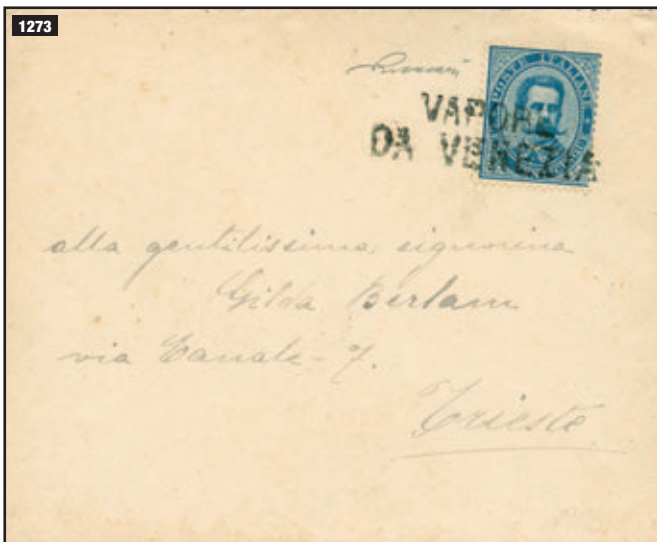 1273
POSTE ITALIANE
VAPORE
DA VENEZIA
alla gentilissima signorina
Gilda Berlam
via Canale - 7.
Trieste